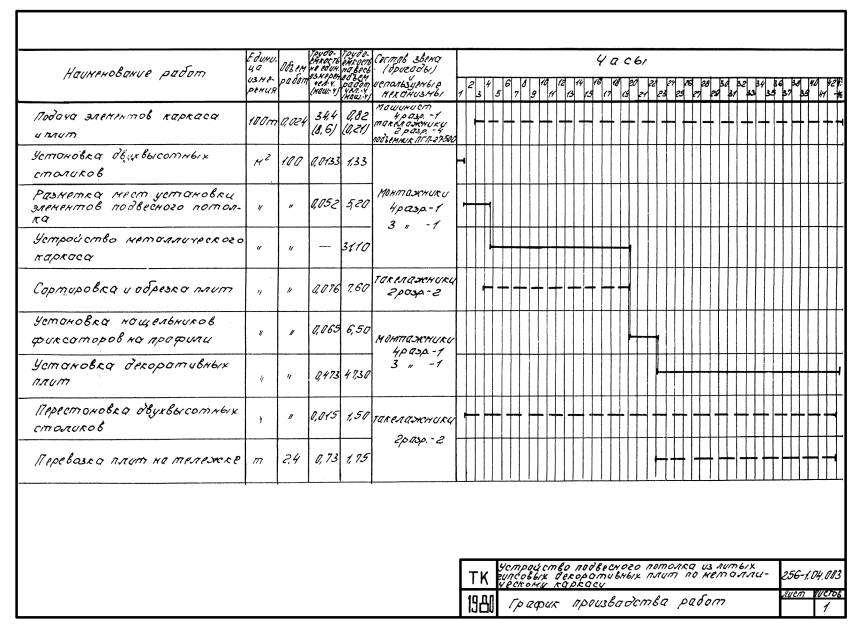 Наименование работ
Едини-
ца
изме-
рения
Объем
работ
Трудо-
емкость
на един.
измерен.
чел-ч
(маш-ч)
Трудо-
емкость
на весь
объем
работ
чел-ч
(маш-ч)
Состав звена
(бригады)
и
используемые
механизмы
Часы
2 4 6 8 10 12 14 16 18 20 22 24 26 28 30 32 34 36 38 40 42
1 3 5 7 9 11 13 15 17 19 21 23 25 27 29 31 33 35 37 39 41
Подача элементов каркаса
и плит
100т 0,024 34,4 0,82
(8,6) (0,21)
Машинист
4 разр.-1
такелажники
2 разр.-4
подъемник
Установка двухвысотных
столиков
м² 100 0,0133 1,33
Разметка мест установки
элементов подвесного потол-
ка
" " 0,052 5,20
Монтажники
4 разр.-1
3 " -1
Устройство металлического
каркаса
" " — 31,10
Сортировка и обрезка плит
" " 0,076 7,60
Такелажники
2 разр.-2
Установка нащельников
фиксаторов на профили
" " 0,065 6,50
Монтажники
4 разр.-1
3 " -1
Установка декоративных
плит
" " 0,473 47,30
Перестановка двухвысотных
столиков
" " 0,015 1,50
такелажники
2 разр.-2
Перевозка плит на тележке
т 2,4 0,73 1,75
ТК
Устройство подвесного потолка из литых
гипсовых декоративных плит по металли-
ческому каркасу
256-1.04.083
1980
График производства работ
Лист Листов
1